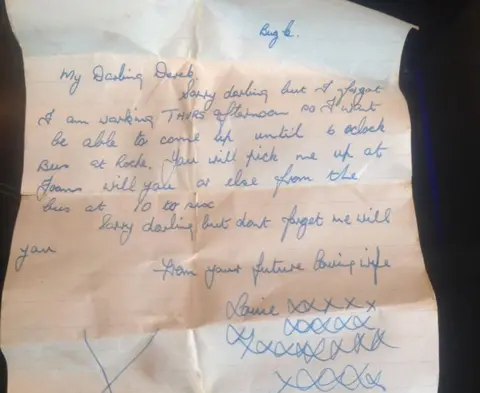 Bugle.
My Darling Derek,
Sorry darling but I forgot
I am working THURS afternoon so I wont
be able to come up until 6 oclock
Bus at Roche. You will pick me up at
Joans will you or else from the
bus at 10 to six
Sorry darling but dont forget me will
you
From your future loving wife
xxxxxx
xxxxx
xxxxxxxxx
xxxxx